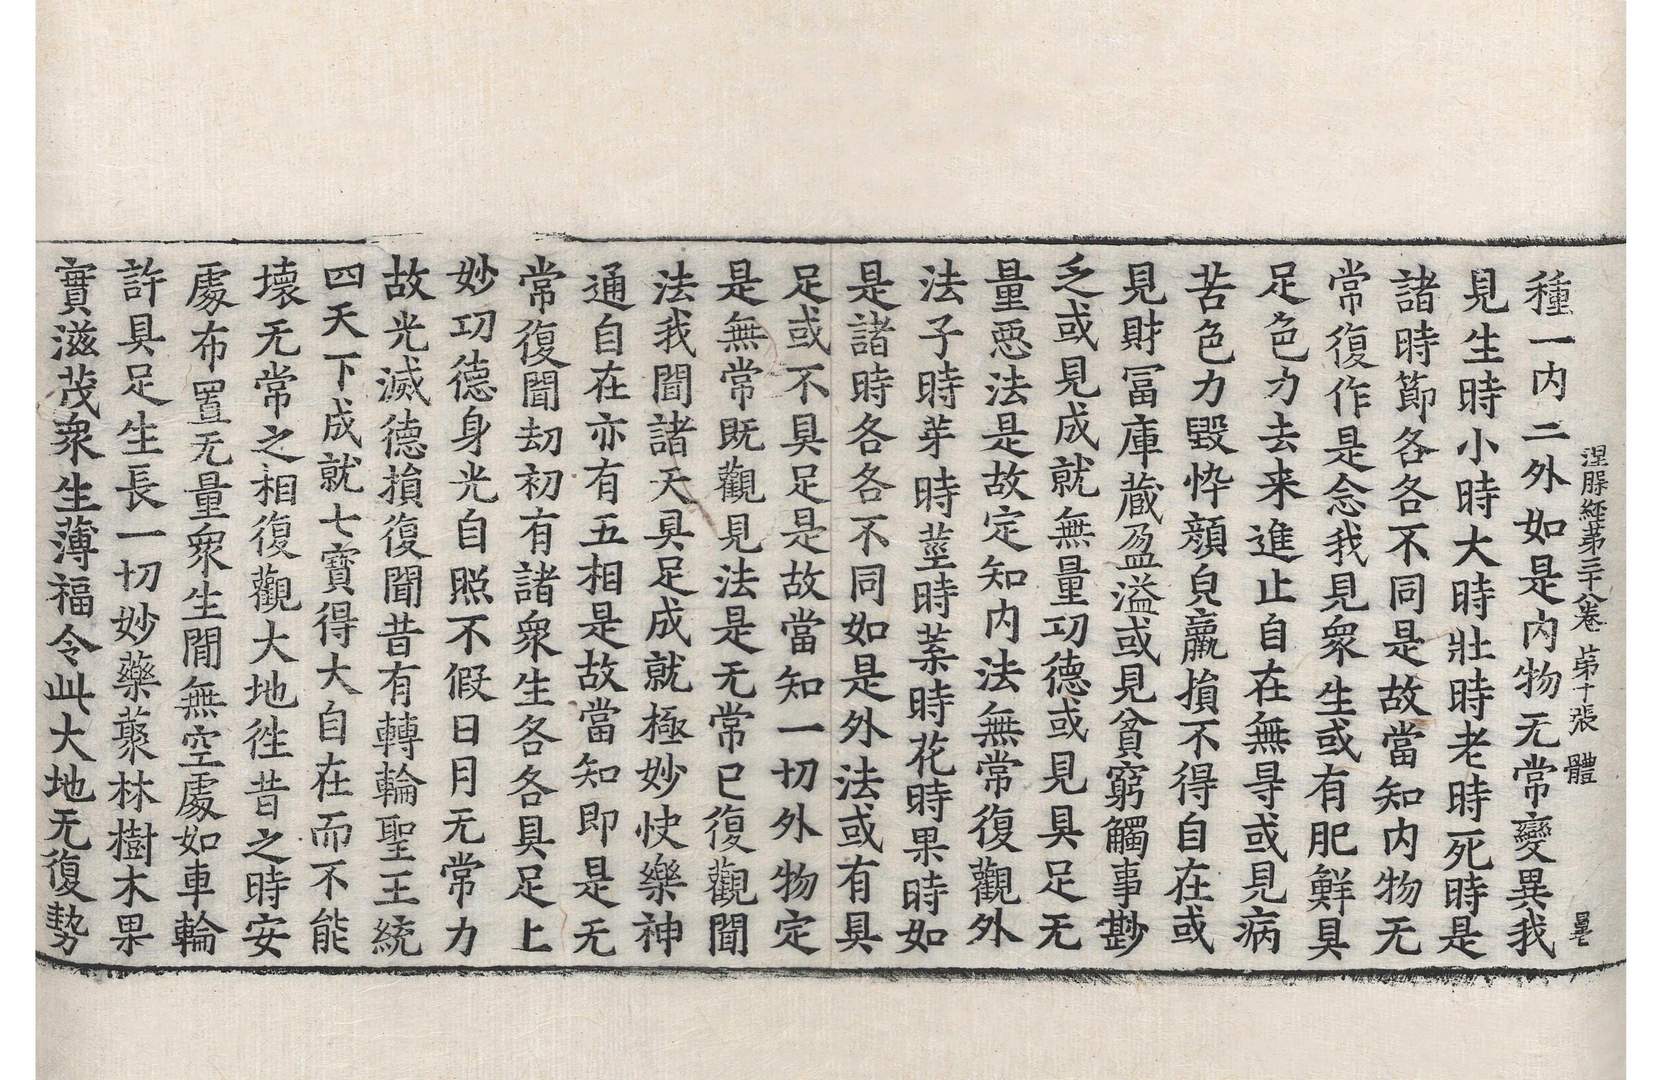 涅槃經第三十八卷 第十張 體
種一内二外如是内物无常變異我
見生時小時大時壯時老時死時是
諸時節各各不同是故當知内物无
常復作是念我見衆生或有肥鮮具
足色力去来進止自在無㝵或見病
苦色力毀悴顏皃羸損不得自在或
見財冨庫蔵盈溢或見貧窮觸事尠
乏或見成就無量功德或見具足无
量惡法是故定知内法無常復觀外
法子時芽時莖時葉時花時果時如
是諸時各各不同如是外法或有具
足或不具足是故當知一切外物定
是無常既觀見法是无常已復觀聞
法我聞諸天具足成就極妙快樂神
通自在亦有五相是故當知即是无
常復聞劫初有諸衆生各各具足上
妙功德身光自照不假日月无常力
故光滅德損復聞昔有轉輪聖王統
四天下成就七寶得大自在而不能
壞无常之相復觀大地徃昔之時安
處布置无量衆生間無空處如車輪
許具足生長一切妙藥藂林樹木果
實滋茂衆生薄福令此大地无復勢